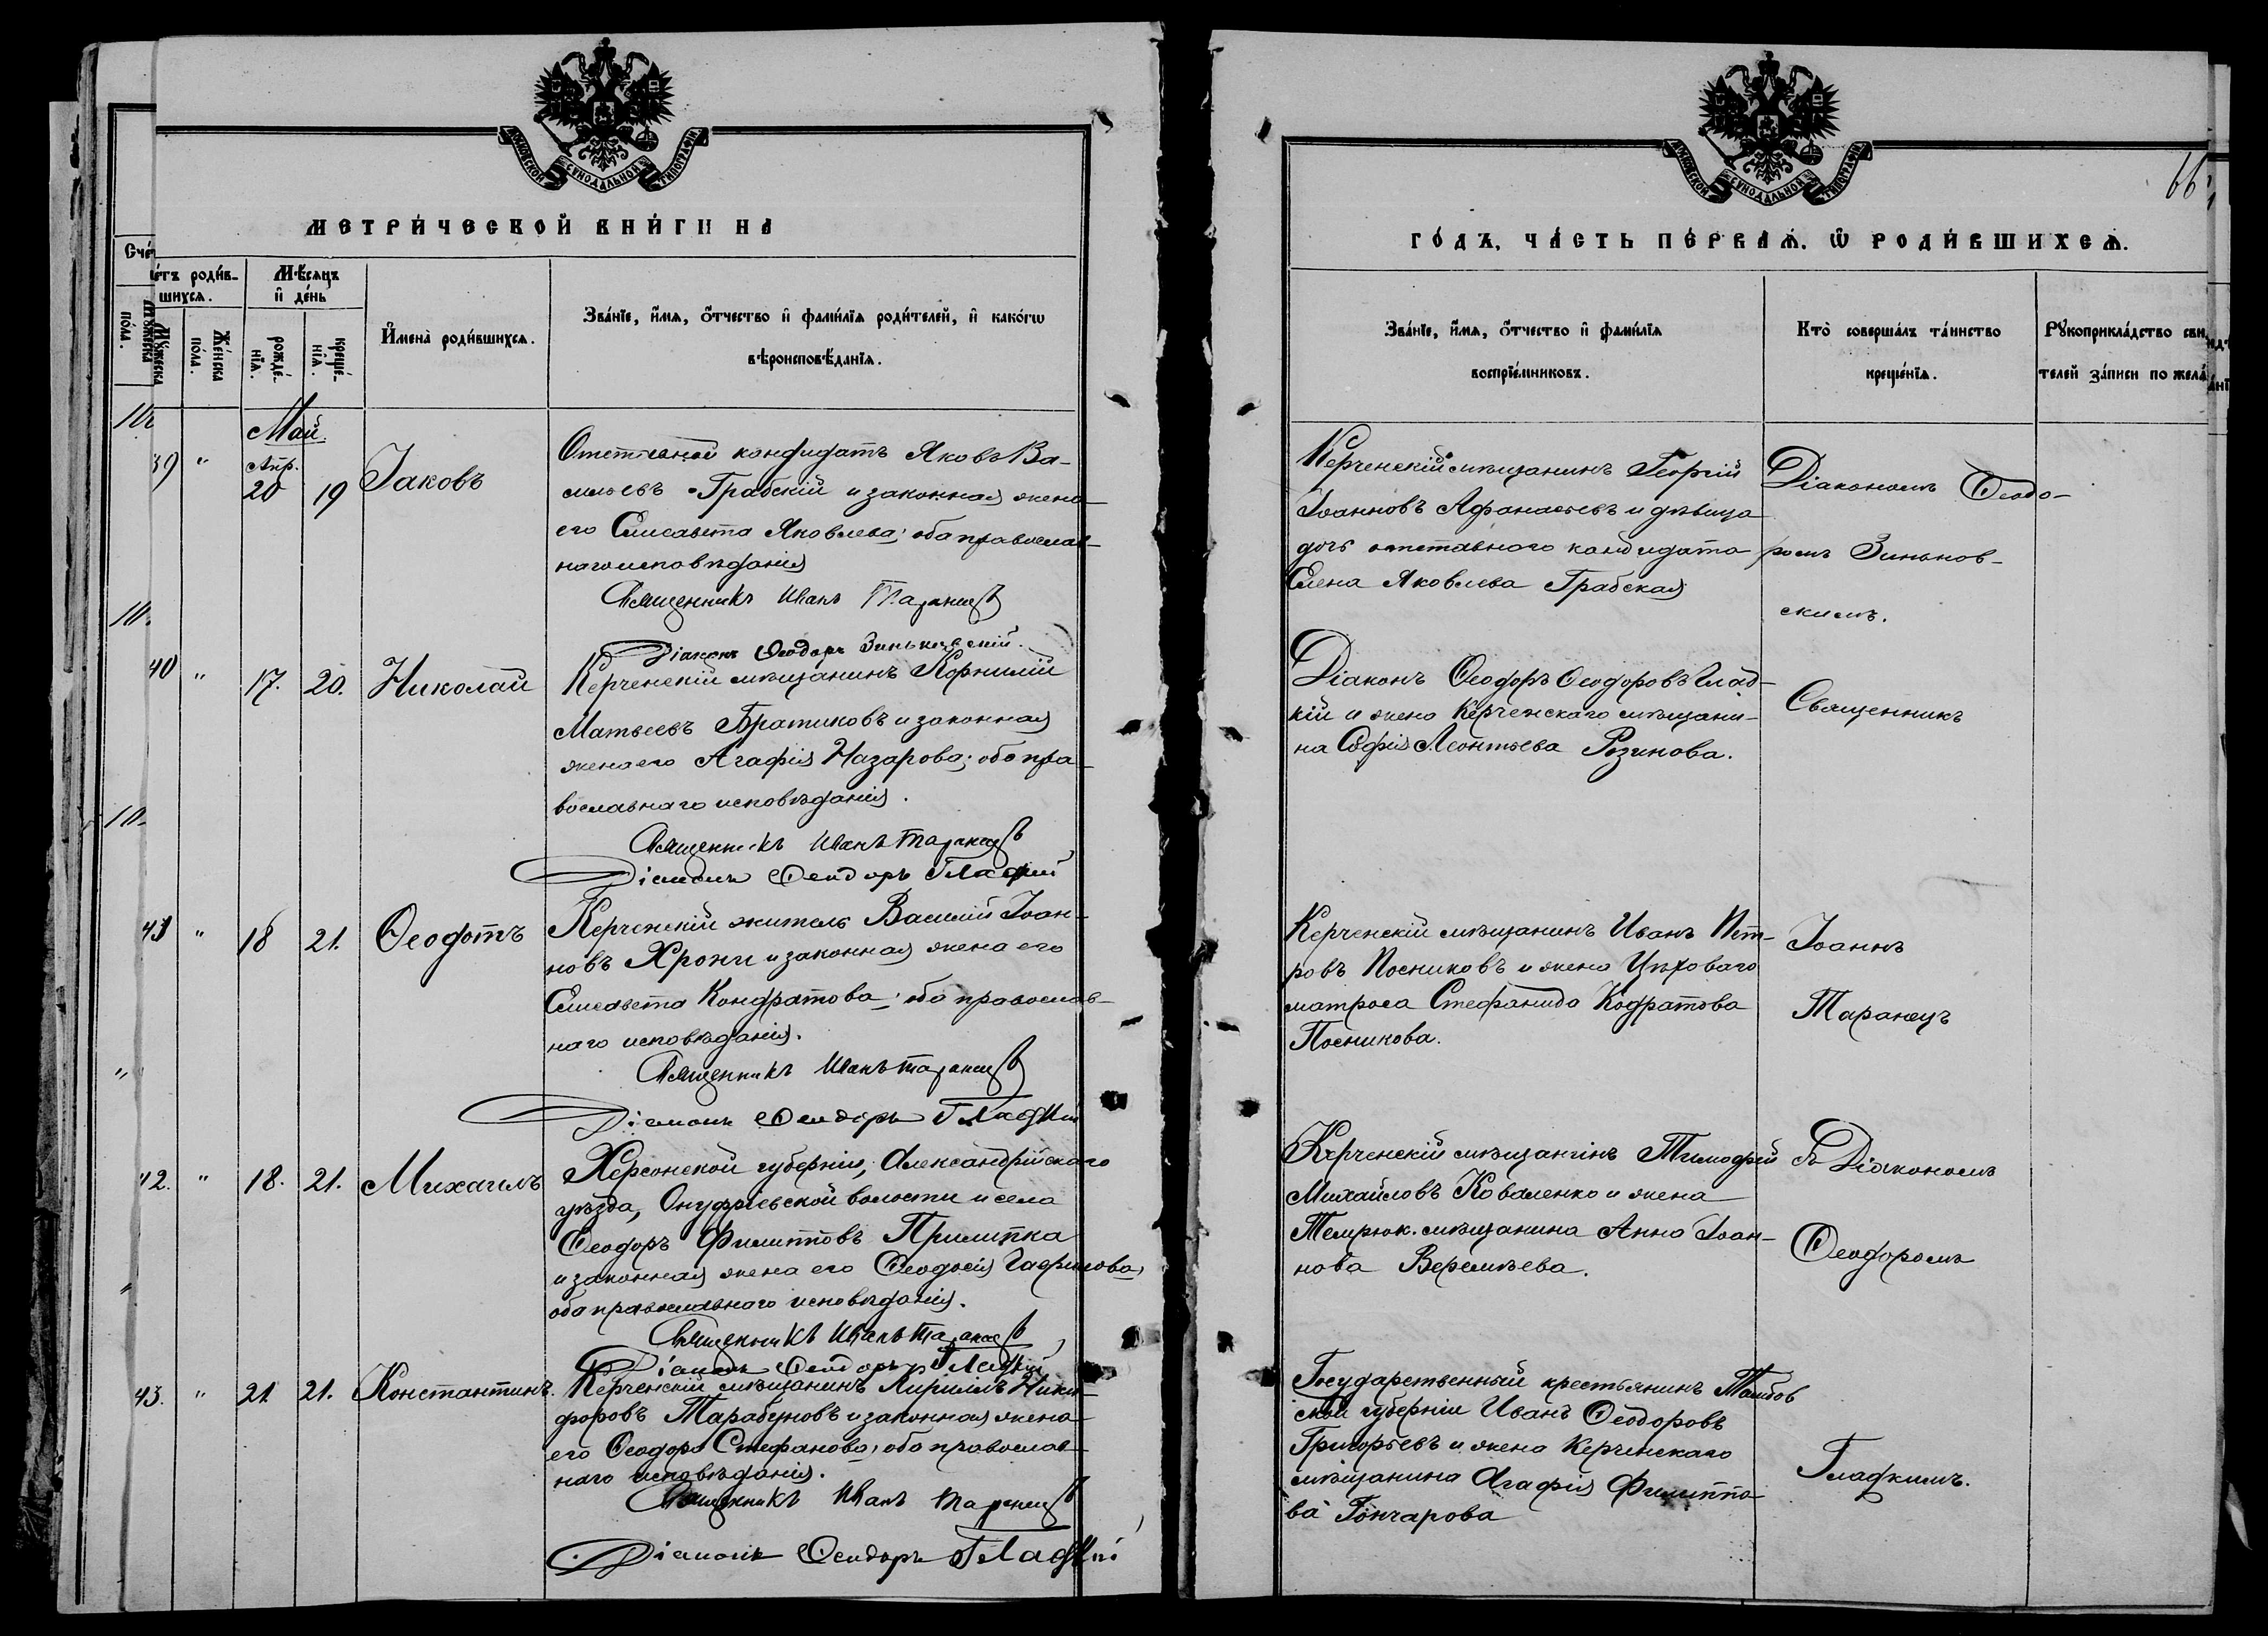 МОСКОВСКОЙ СѴНОДАЛЬНОЙ ТИПОГРАФІИ
МЕТРИ́ЧЕСКОЙ КНИ́ГИ НА
Сче́тъ роди́в-
шихся.
Мꙋ́жеска по́ла.
Же́нска по́ла.
Мѣ́сяцъ
и҆ де́нь
рожде́-
нїѧ.
креще́-
нїѧ.
И҆мена̀ роди́вшихсѧ.
Зва́нїе, и҆́мѧ, ѻ҆́тчество и҆ фами́лїѧ роди́телей, и҆ како́гѡ
вѣроисповѣ́данїѧ.
Май.
39 " Апр. 20 19 Іаковъ
Отставной кондидатъ Яковъ Ва-
сильевъ Грабскій и законная жена
его Елисавета Яковлева; оба православ-
наго исповѣданія
Священникъ Иванъ Таранецъ
Діаконъ Ѳеодоръ Зиньковскій.
40 " 17. 20. Николай
Керченскій мѣщанинъ Корнилій
Матвеевъ Братиковъ и законная
жена его Агафія Назарова; оба пра-
вославнаго исповѣданія.
Священникъ Иванъ Таранецъ
Діаконъ Ѳеодоръ Гладкій
41 " 18 21. Ѳеодотъ
Керченскій житель Василій Іоан-
новъ Хрони и законная жена его
Елисавета Кондратова; оба православ-
наго исповѣданія.
Священникъ Иванъ Таранецъ
Діаконъ Ѳеодоръ Гладкій
42. " 18. 21. Михаилъ
Херсонской губерніи, Александрійскаго
уѣзда, Онуфріевской волости и села
Ѳеодоръ Филипповъ Прилипка
и законная жена его Ѳеодосія Гаврилова,
оба православнаго исповѣданія.
Священникъ Иванъ Таранецъ
Діаконъ Ѳеодоръ Гладкій
43. " 21 21. Константинъ.
Керченскій мѣщанинъ Кириллъ Ники-
форовъ Тарабуновъ и законная жена
его Ѳеодора Стефанова, оба православ-
наго исповѣданія.
Священникъ Иванъ Таранецъ
Діаконъ Ѳеодоръ Гладкій
МОСКОВСКОЙ СѴНОДАЛЬНОЙ ТИПОГРАФІИ
66
ГО́ДЪ, ЧА́СТЬ ПЕ́РВАѦ, Ѡ҆ РОДИ́ВШИХСѦ.
Зва́нїе, и҆́мѧ, ѻ҆́тчество и҆ фами́лїѧ
воспрїе́мниковъ.
Кто̀ соверша́лъ та́инство
креще́нїѧ.
Рꙋкоприкла́дство сви
телей за́писи по жела́
Керченскій мѣщанинъ Георгій
Іоанновъ Афанасьевъ и дѣвица
дочь отставного кандидата
Елена Яковлева Грабская
Діакономъ Ѳеодо-
ромъ Зиньков-
скимъ.
Діаконъ Ѳеодоръ Ѳеодоровъ Глад-
кій и жена Керченскаго мѣщани-
на Софія Леонтьева Розинова.
Священникъ
Керченскій мѣщанинъ Иванъ Пет-
ровъ Посниковъ и жена
матроса Стефанида Кодратова
Посникова.
Іоаннъ
Таранецъ
Керченскій мѣщанинъ Тимофей
Михайловъ Коваленко и жена
Темрюк. мѣщанина Анна Іоан-
нова Веремѣева.
съ Діакономъ
Ѳеодоромъ
Государственный крестьянинъ Тамбов
ской губерніи Иванъ Ѳеодоровъ
Григорьевъ и жена Керченскаго
мѣщанина Агафія Филиппо-
ва Гончарова
Гладкимъ.